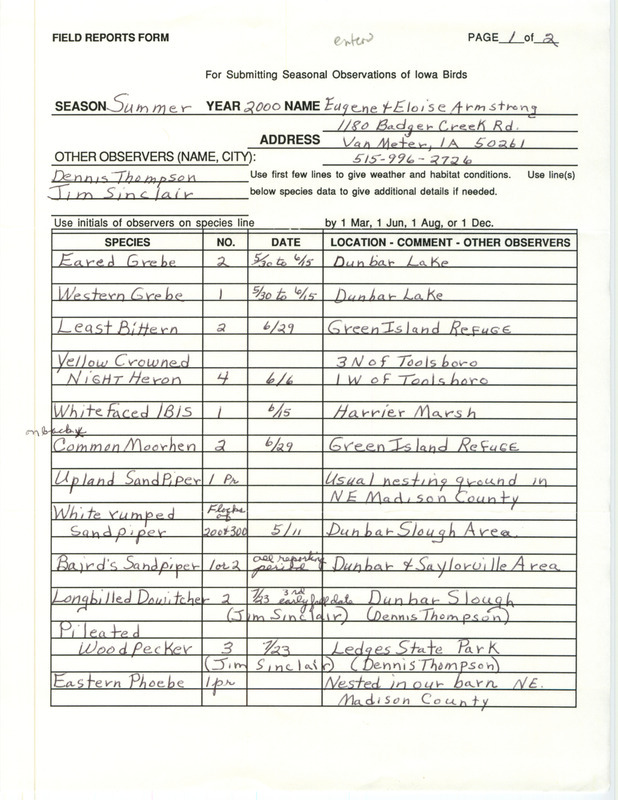 FIELD REPORTS FORM
enter
PAGE 1 of 2
For Submitting Seasonal Observations of Iowa Birds
SEASON Summer YEAR 2000 NAME Eugene & Eloise Armstrong
1180 Badger Creek Rd.
ADDRESS Van Meter, IA 50261
OTHER OBSERVERS (NAME, CITY): 515-996-2726
Dennis Thompson Use first few lines to give weather and habitat conditions. Use line(s)
Jim Sinclair below species data to give additional details if needed.
Use initials of observers on species line by 1 Mar, 1 Jun, 1 Aug, or 1 Dec.
SPECIES NO. DATE LOCATION - COMMENT - OTHER OBSERVERS
Eared Grebe 2 5/30 to 6/15 Dunbar Lake
Western Grebe 1 5/30 to 6/15 Dunbar Lake
Least Bittern 2 6/29 Green Island Refuge
Yellow Crowned 3 N of Toolsboro
Night Heron 4 6/6 1 W of Toolsboro
White Faced IBIS 1 6/15 Harrier Marsh
Common Moorhen 2 6/29 Green Island Refuge
Upland SandPiper 1 Pr Usual nesting ground in
NE Madison County
White rumped Flocks of
Sandpiper 200+300 5/11 Dunbar Slough Area
Baird's Sandpiper 1 or 2 all reporting period Dunbar & Saylorville Area
Longbilled Dowitcher 2 7/23 3rd early fall date Dunbar Slough
(Jim Sinclair) (Dennis Thompson)
Pileated
Woodpecker 3 7/23 Ledges State Park
(Jim Sinclair) (Dennis Thompson)
Eastern Phoebe 1 pr Nested in our barn NE.
Madison County